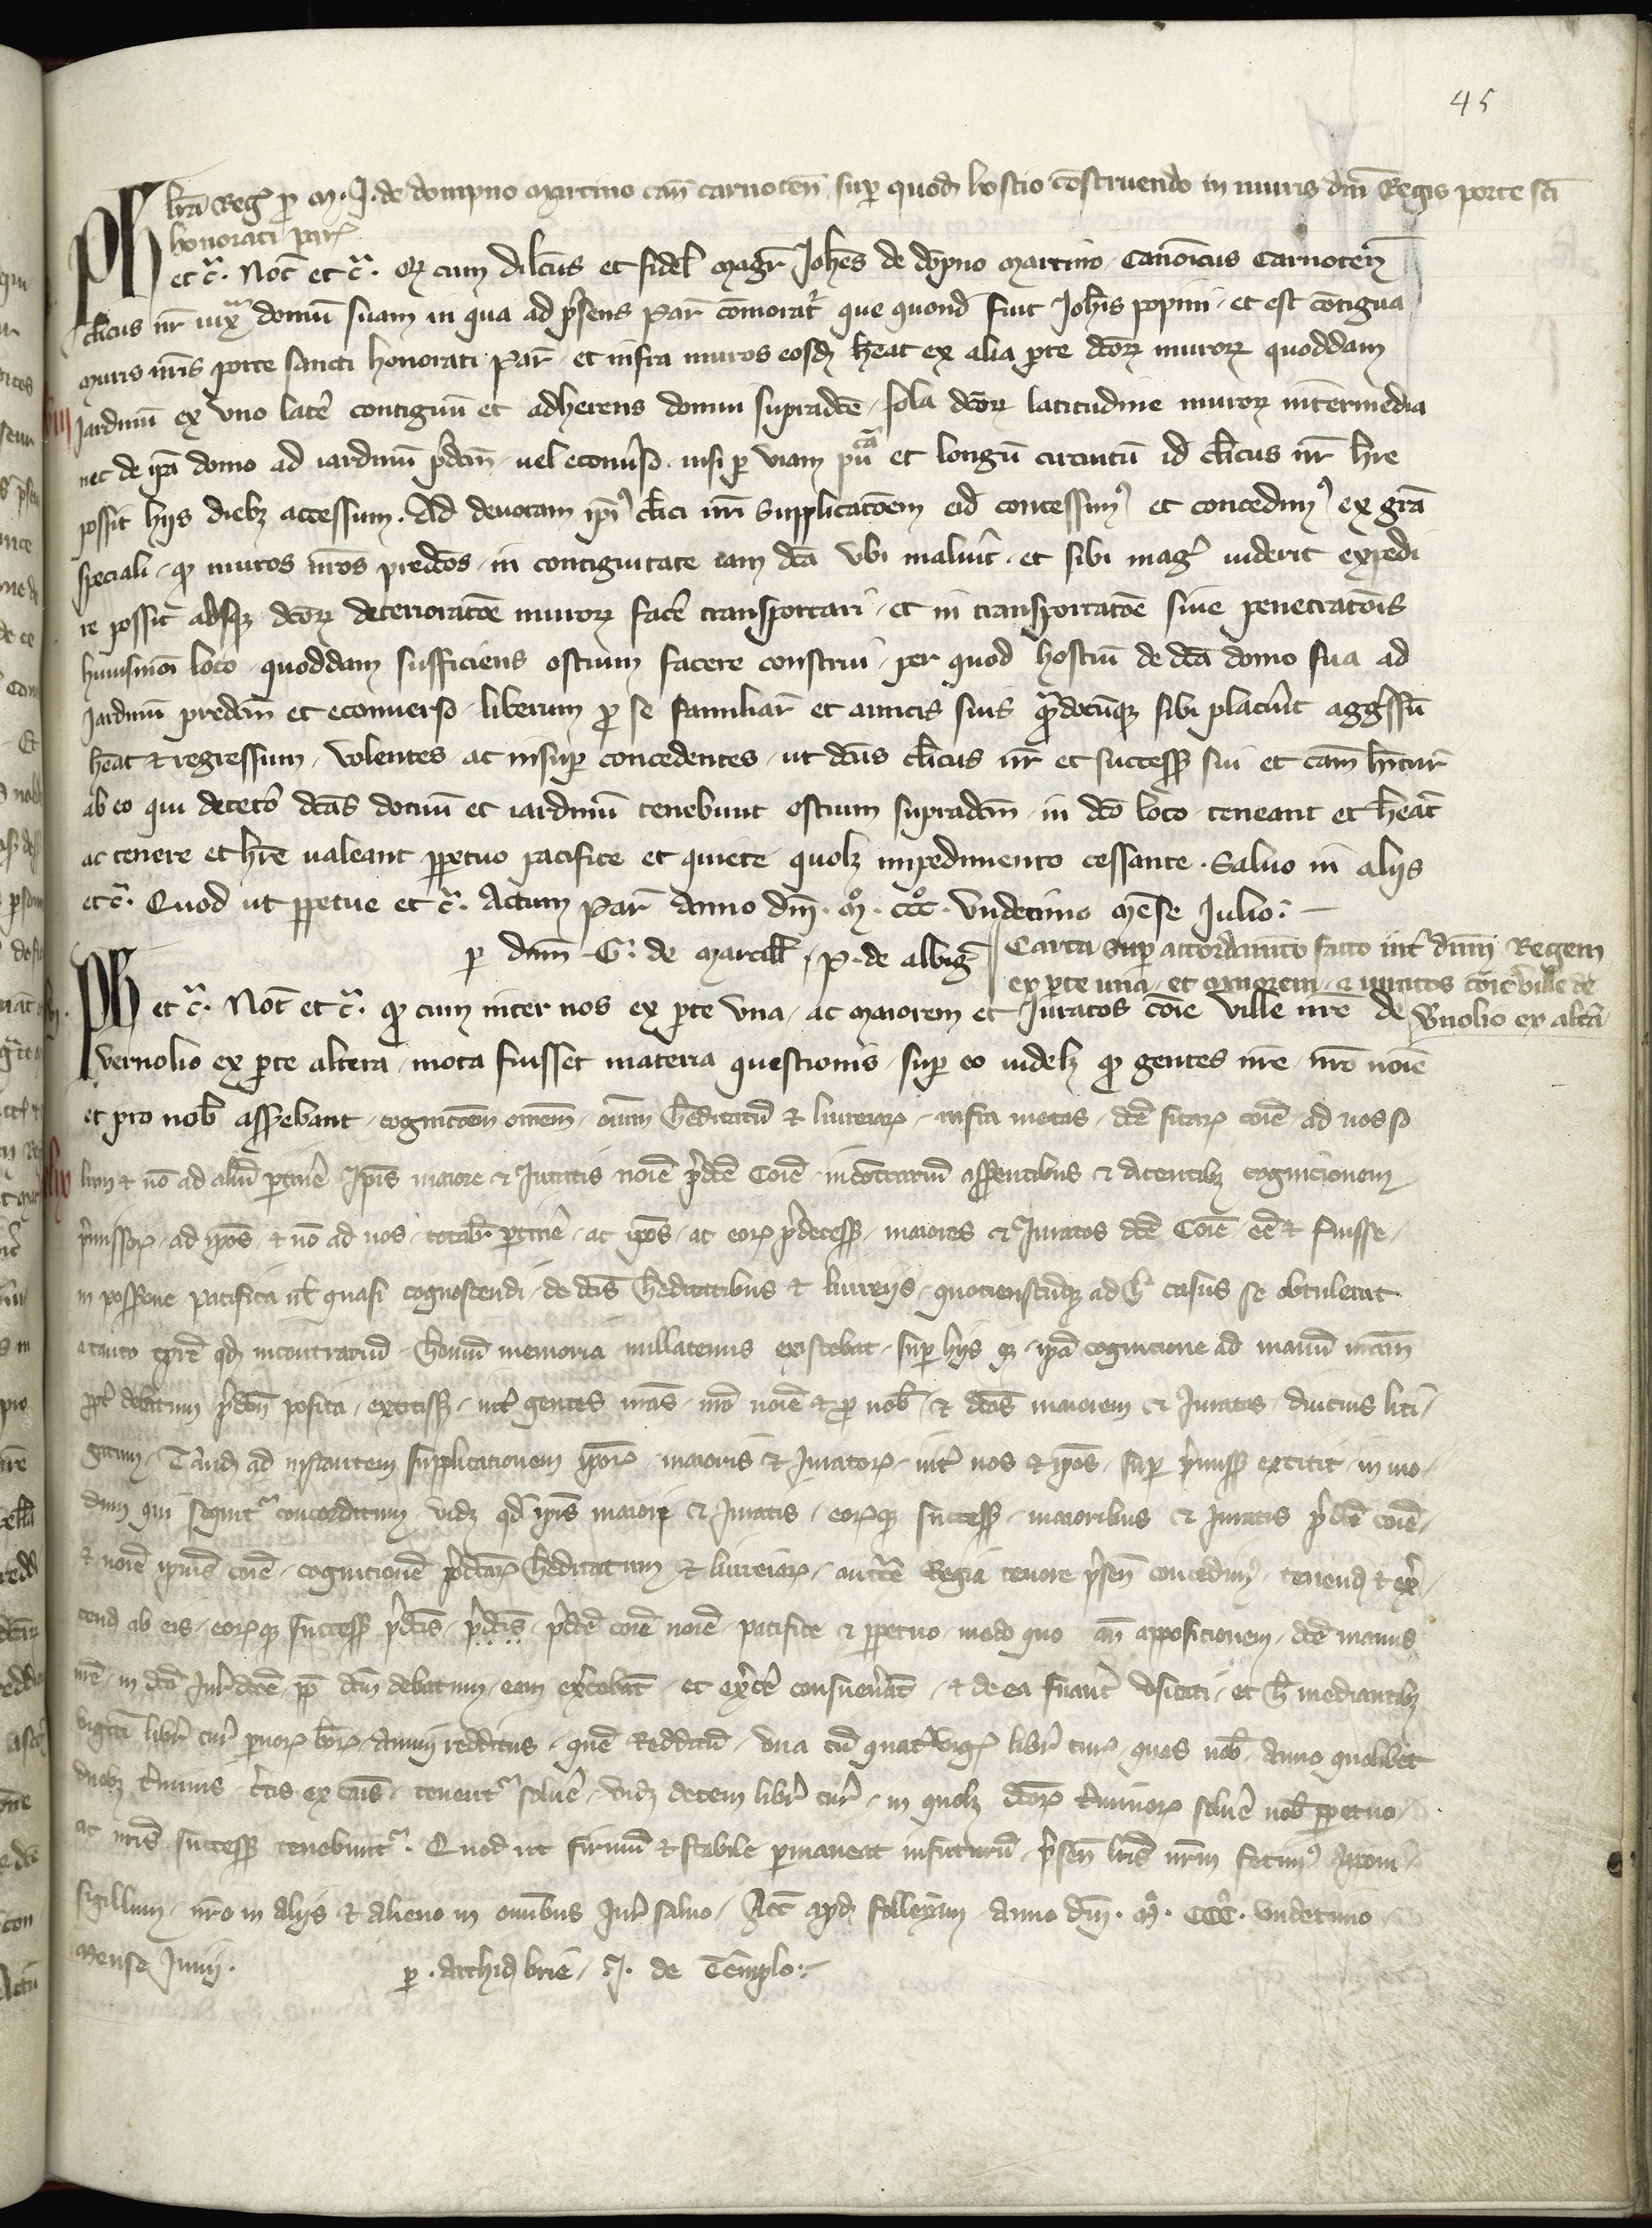 45
lr̄a Reg̃ p M. J. de dompno martino can̄ carnoteñ sup quodꝫ hostio c̄ostruendo in muris dn̄i Regis porte sc̄i
honorati par̃
Ph et c̃. Not̃ et c̃. qꝫ cum dilc̄us et fidel̃ magr̃ Joh̄es de dōpno martino canonicus Carnoteñ
cl̄icus nr̄ iuxᵃ domū suam in qua ad p̄sens par̃ cōmorat̃ que quond̃ fuit Joh̄is popini et est c̄otigua
muris nr̄is porte sancti honorati par̃ et infra muros eosdꝫ h̄eat ex alia pte dc̄oꝝ muroꝝ quoddam
Jardinū ex vno lat̃e contiguū et adherens domui supradc̄e sola dc̄oꝝ latitudine muroꝝ int̃media
nec de ip̄a domo ad iardinū p̄dcm̄ uel econuso nisi p viam pu^cā^ et longū circuitū id̃ cl̄icus nr̄ h̄re
possit hiis diebꝫ accessum. Ad deuotam ip̄iꝰ cl̄ici nr̄i supplicatōem eid̃ concessimꝰ et concedimꝰ ex gr̄a
speciali qꝫ muros nr̄os predc̄os in contiguitate iam dc̄a vbi maluit̃ et sibi magꝭ uiderit expedi
re possit absqꝫ dc̄oꝝ deterioratōe muroꝝ fac̃e transportari et in transportatōe siue penetratōis
huiusmōi loco quoddam sufficiens ostium facere construi per quod hostiū de dc̄a domo sua ad
Jardinū predcm̄ et econuerso liberum p se familiar̃ et amicis suis qn̄documqꝫ sibi placu̔it aggr̄ssū
h̄eat et regressum volentes ac insup concedentes ut dc̄us cl̄icus nr̄ et success̃ sui et cām h̄ntur̃
ab eo qui detetõ dc̄as domū et iardinū tenebunt ostium supradcm̄ in dc̄o loco teneant et h̄eāt
ac tenere et h̄re ualeant ppetuo pacifice et quiete quolꝫ impedimento cessante. Saluo in aliis
et c̃. Quod ut ppetue et c̃. Actum par̃ anno dn̄i. M̊. CCC̊. vndecimo mēse Julio.
p dn̄m G. de marcill̃. P. de albig̃
Carta sup accordamento facto int̃ dn̄m Regem
ex pte una et maiorem et iuratos cōie ville de
Vnolio ex alt̃a
Ph et c̃. Not̃ et c̃. qꝫ cum inter nos ex pte vna ac maiorem et Juratos cōie ville nr̄e de
vernolio ex pte altera mota fuisset materia questionis sup eo uidelꝫ qꝫ gentes nr̄e nr̄o noīe
et pro nob̃ asserebant cognitōem omēm om̄m hereditatū et liureiaꝝ infra metas dc̄e sitaꝝ cōie ad nos so
lum et nō ad aliū ptinẽ. Ip̄is maiore et Juratis noīe p̄dc̄e Cōie incontrariū asserentibus et dicentibꝫ cognicionem
p̄missoꝝ ad ip̄os et nō ad nos totalr̃ ptinẽ ac ip̄os ac eoꝝ p̄decess̃ maiores et Juratos dc̄e Cōie ēe et fuisse
in possessione pacifica ul̃ quasi cognoscendi de dc̄is hereditatibus et liureijs quotienscūqꝫ ad h̃ casus se obtulerat
a tanto tpr̃e qd̃ incontrariū hominū memoria nullatenus existebat sup hijs qꝫ ip̄a cognicione ad manū nr̄am
ppt̃ debatum p̄dcm̄ posita extitiss̃ int̃ gentes nr̄as nr̄o noīe et p nob̃ et dc̄os maiorem et Juratos diucius liti
gatum. Tandꝫ ad instantem supplicationem ip̄oꝝ maioris et Juratoꝝ int̃ nos et ip̄os sup p̄miss̃ extitit in mo
dum qui sequit̃ concordatum vidꝫ qd̃ ip̄is maiori et Juratis eoꝝqꝫ success̃ maioribus et Juratis p̄dc̄e cōie
et noīe ipius cōie cognicionē p̄dc̄aꝝ hereditatum et liureiaꝝ auctōe Regia tenore p̄sen̄ concedimꝰ tenend̃ et ex̃
cend̃ ab eis eoꝝqꝫ success̃ p̄dc̄is p̄dc̄is p̄dc̄e cōie noīe pacifice et ppetuo modo quo an̄ apposicionem dc̄e manus
nr̄e in dc̄a Jur̃dicc̄oe pp̃ dcm̄ debatum eam exc̃ebāt et exc̃e consueũāt et de ea fuāt̃ vsitati et h̃ mediantibꝫ
viginti libr̃ tur̃ paruoꝝ annui redditus quē Redditū vna cū quat̃vigĩ libr̃ tur̃ quos nob̃ anno quolibet
duobꝫ t̃minis c̃tis ex caus̃ tenent̃ soluẽ vidꝫ decem libr̃ tur̃ in quolꝫ dc̄oꝝ t̃minoꝝ soluẽ nob̃ ppetuo
ac nr̄is success̃ tenebunt̃. Quod ut firmū et stabile pmaneat infuturū p̄sen̄ lr̄is nr̄m fecimꝰ apponi
sigillum nr̄o in aliis et alieno in omībus Jur̃ saluo. Act̃ apdꝫ folleyam anno dn̄i. M̊. CCC̊. vndecimo
mense Junij.
p. Archid̃ brie. J. de Templo.